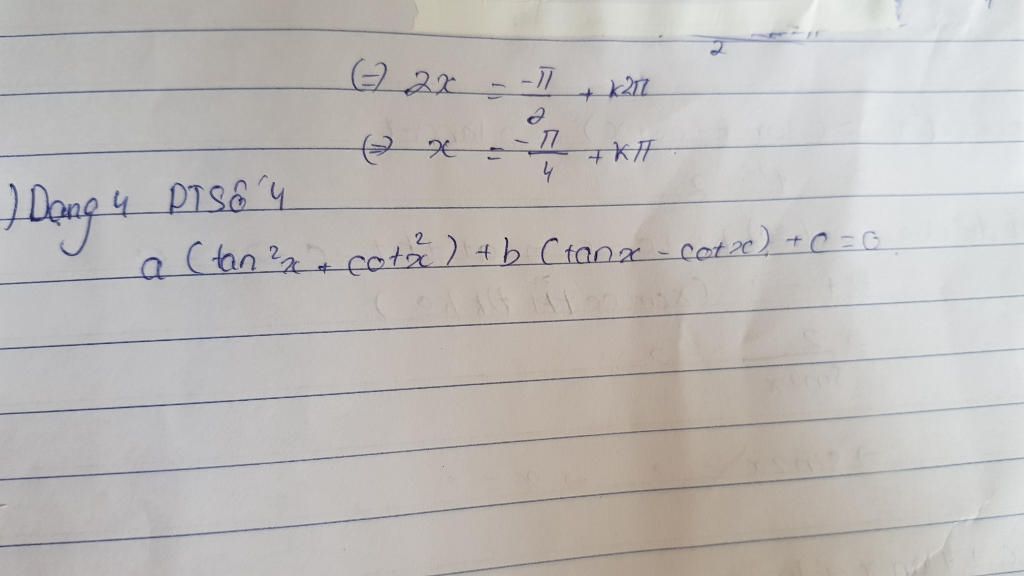 2
(=) 2x = -π/2 + k2π
(=) x = -π/4 + kπ
) Dạng 4 PTSố 4
a (tan²x + cotx²) + b (tanx - cotx) + c = 0